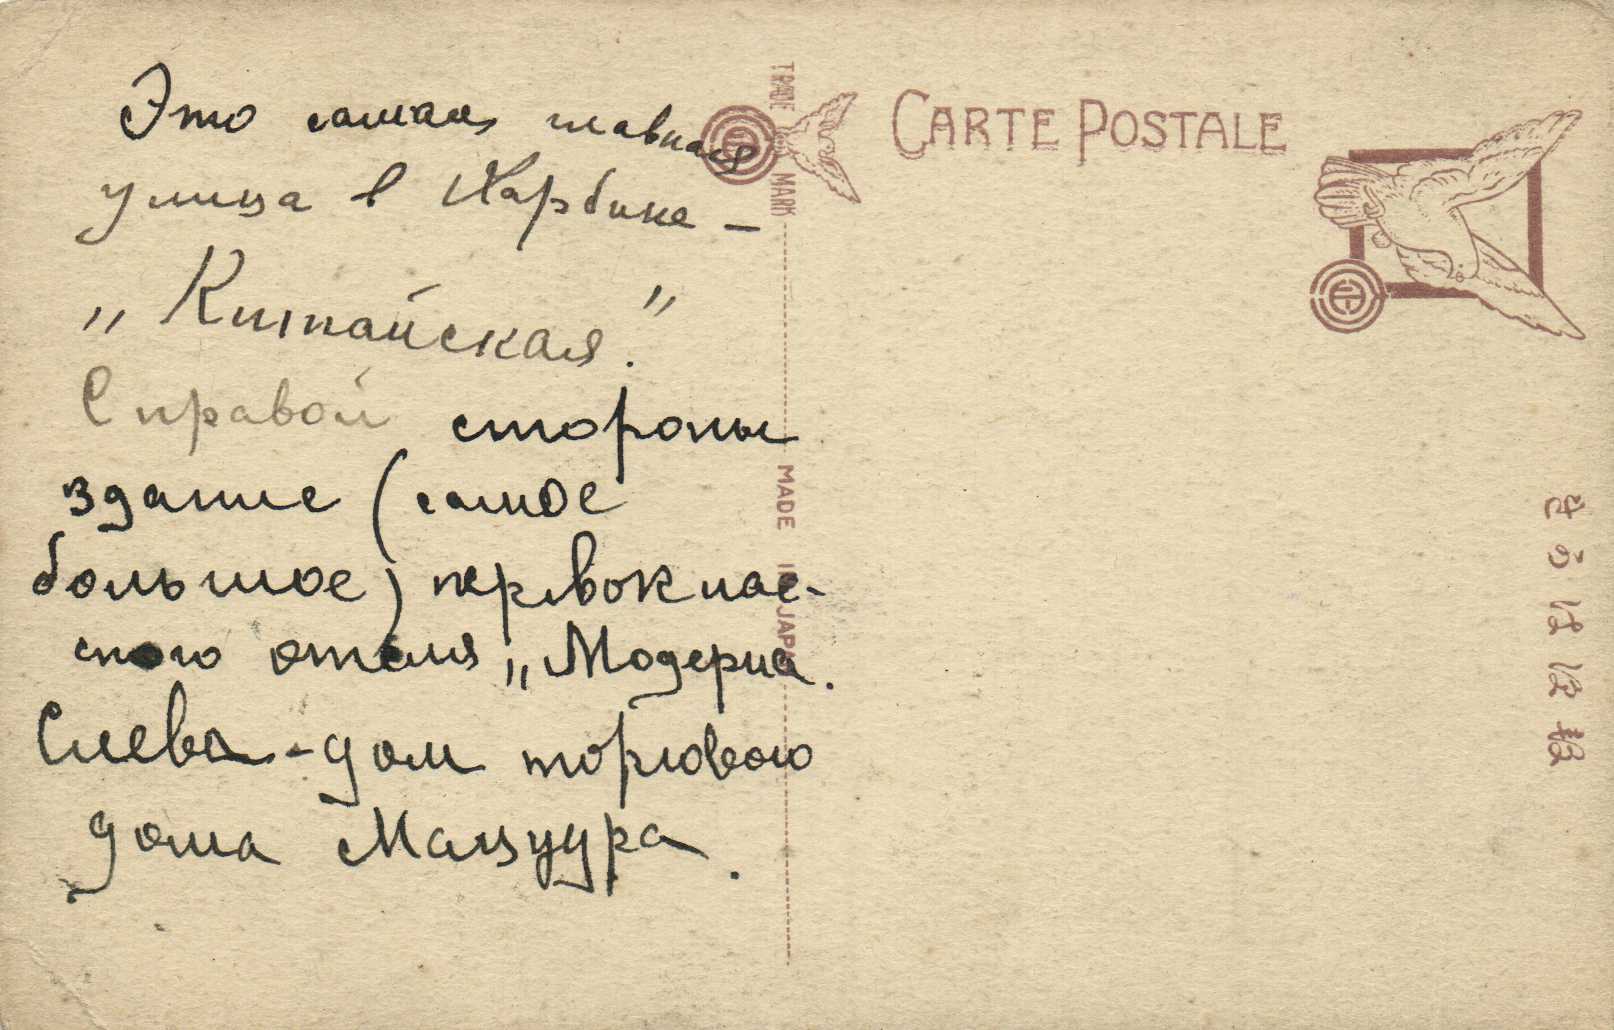 Это самая главная
улица в Харбине –
„Китайская".
С правой стороны
здание (самое
большое) первоклас-
сного отеля „Модерна.
Слева - дом торгового
дома Мацуура.
TRADE MARK
CARTE POSTALE
MADE IN JAPAN
きかは便郵